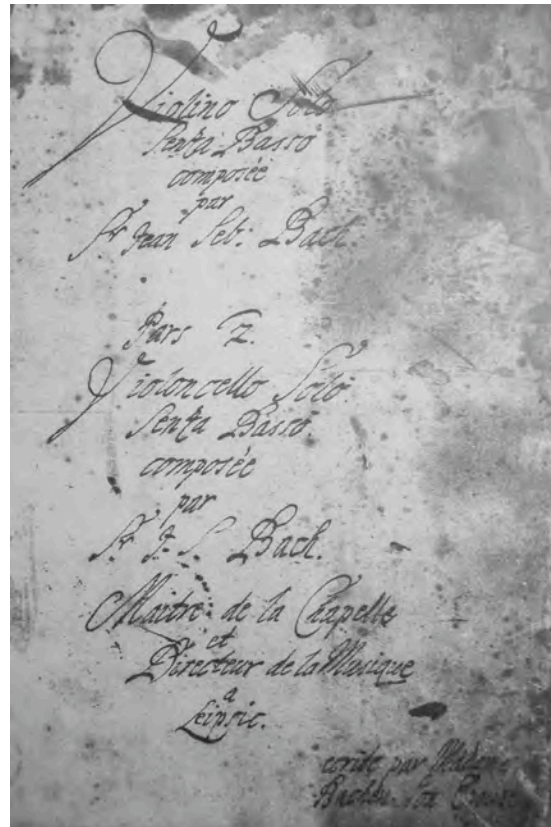 Violino Solo
Senza Basso
composée
par
Sr. Jean Seb: Bach.
Pars 2.
Violoncello Solo
Senza Basso.
composée
par
Sr. J. S. Bach.
Maitre de la Chapelle
et
Directeur de la Musique
a
Leipsic.
ecrite par Madame
Bachen. Son Epouse.